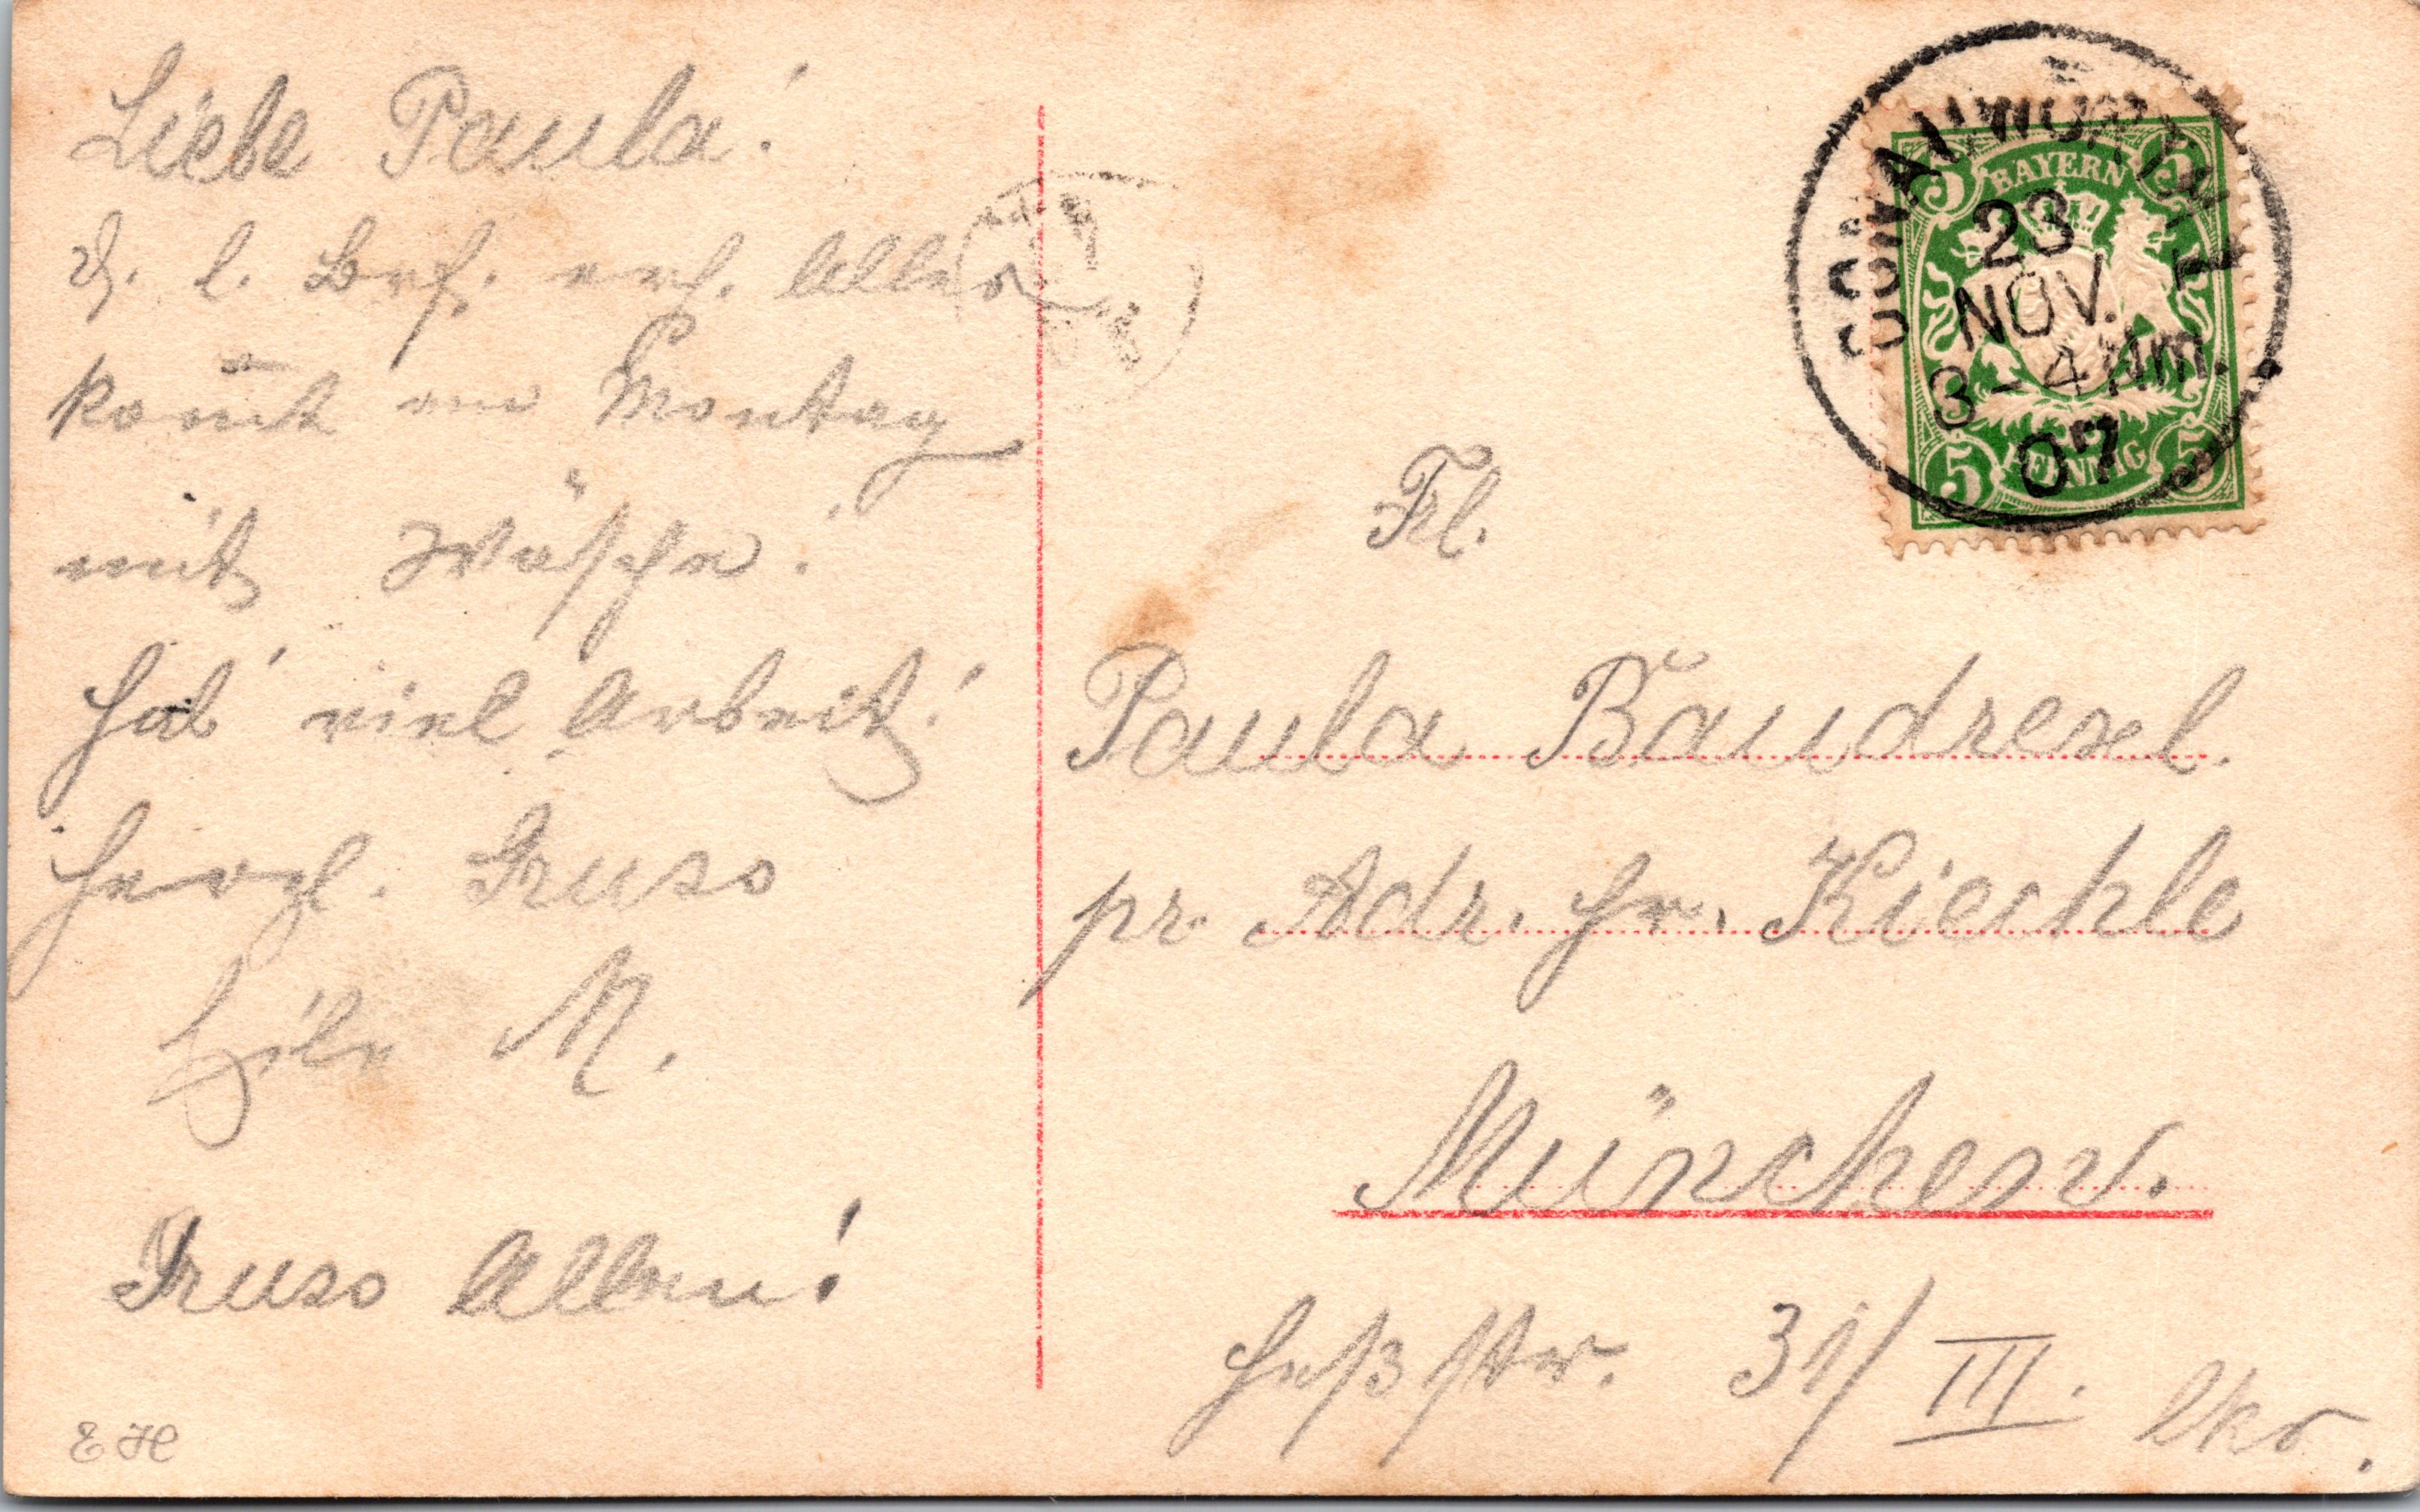 Liebe Paula!
D. l. Brf. erh. Alles
kom̄t am Montag
mit Wäsche!
Hab' viel Arbeit!
Herzl. Gruss
M.
Gruss Allen!
Frl.
Paula Baudrexl.
pr. Adr. Hr. Kiechle
München.
Heßstr. 31/III. lks.
DONAUWÖRTH 1
23
NOV.
3-4 Nm.
07
BAYERN
5 5
PFENNIG
5 5